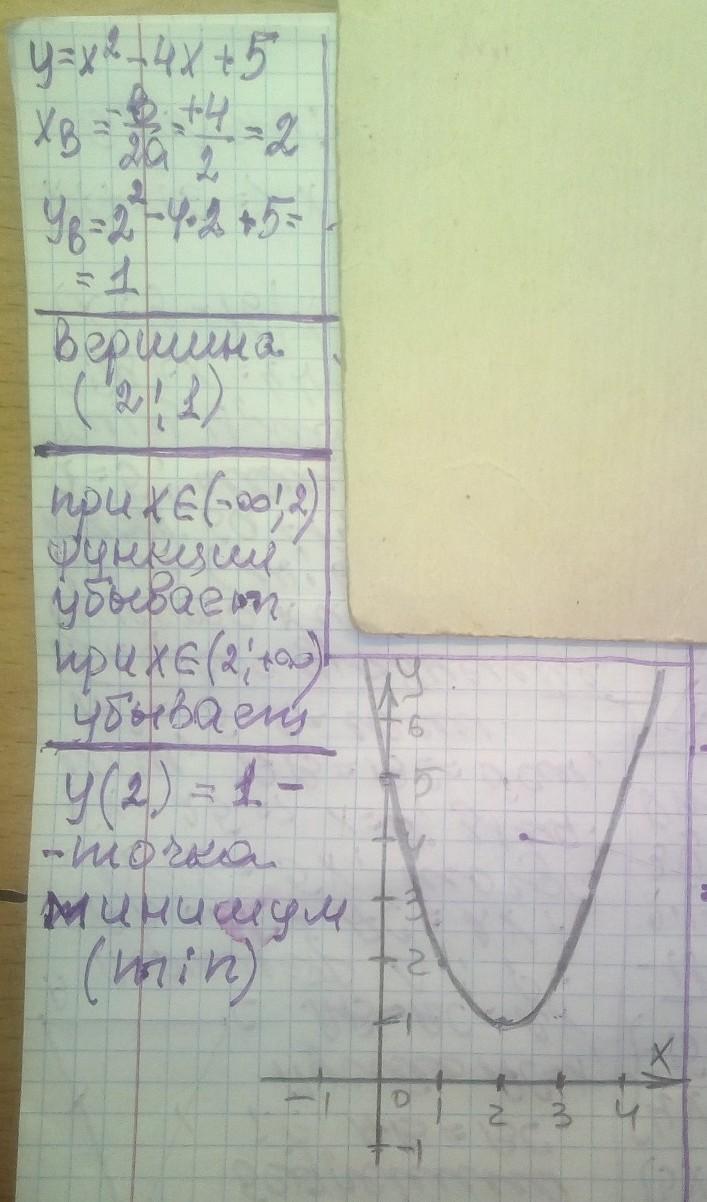 y=x²-4x+5
xв = -в/2a = +4/2 = 2
yв = 2² - 4·2 + 5 =
= 1
Вершина
(2; 1)
при x∈(-∞; 2)
функция
убывает
при x∈(2; +∞)
убывает
y(2) = 1 -
- точка
минимум
(min)
y
6
5
4
3
2
1
x
-1 0 1 2 3 4
-1